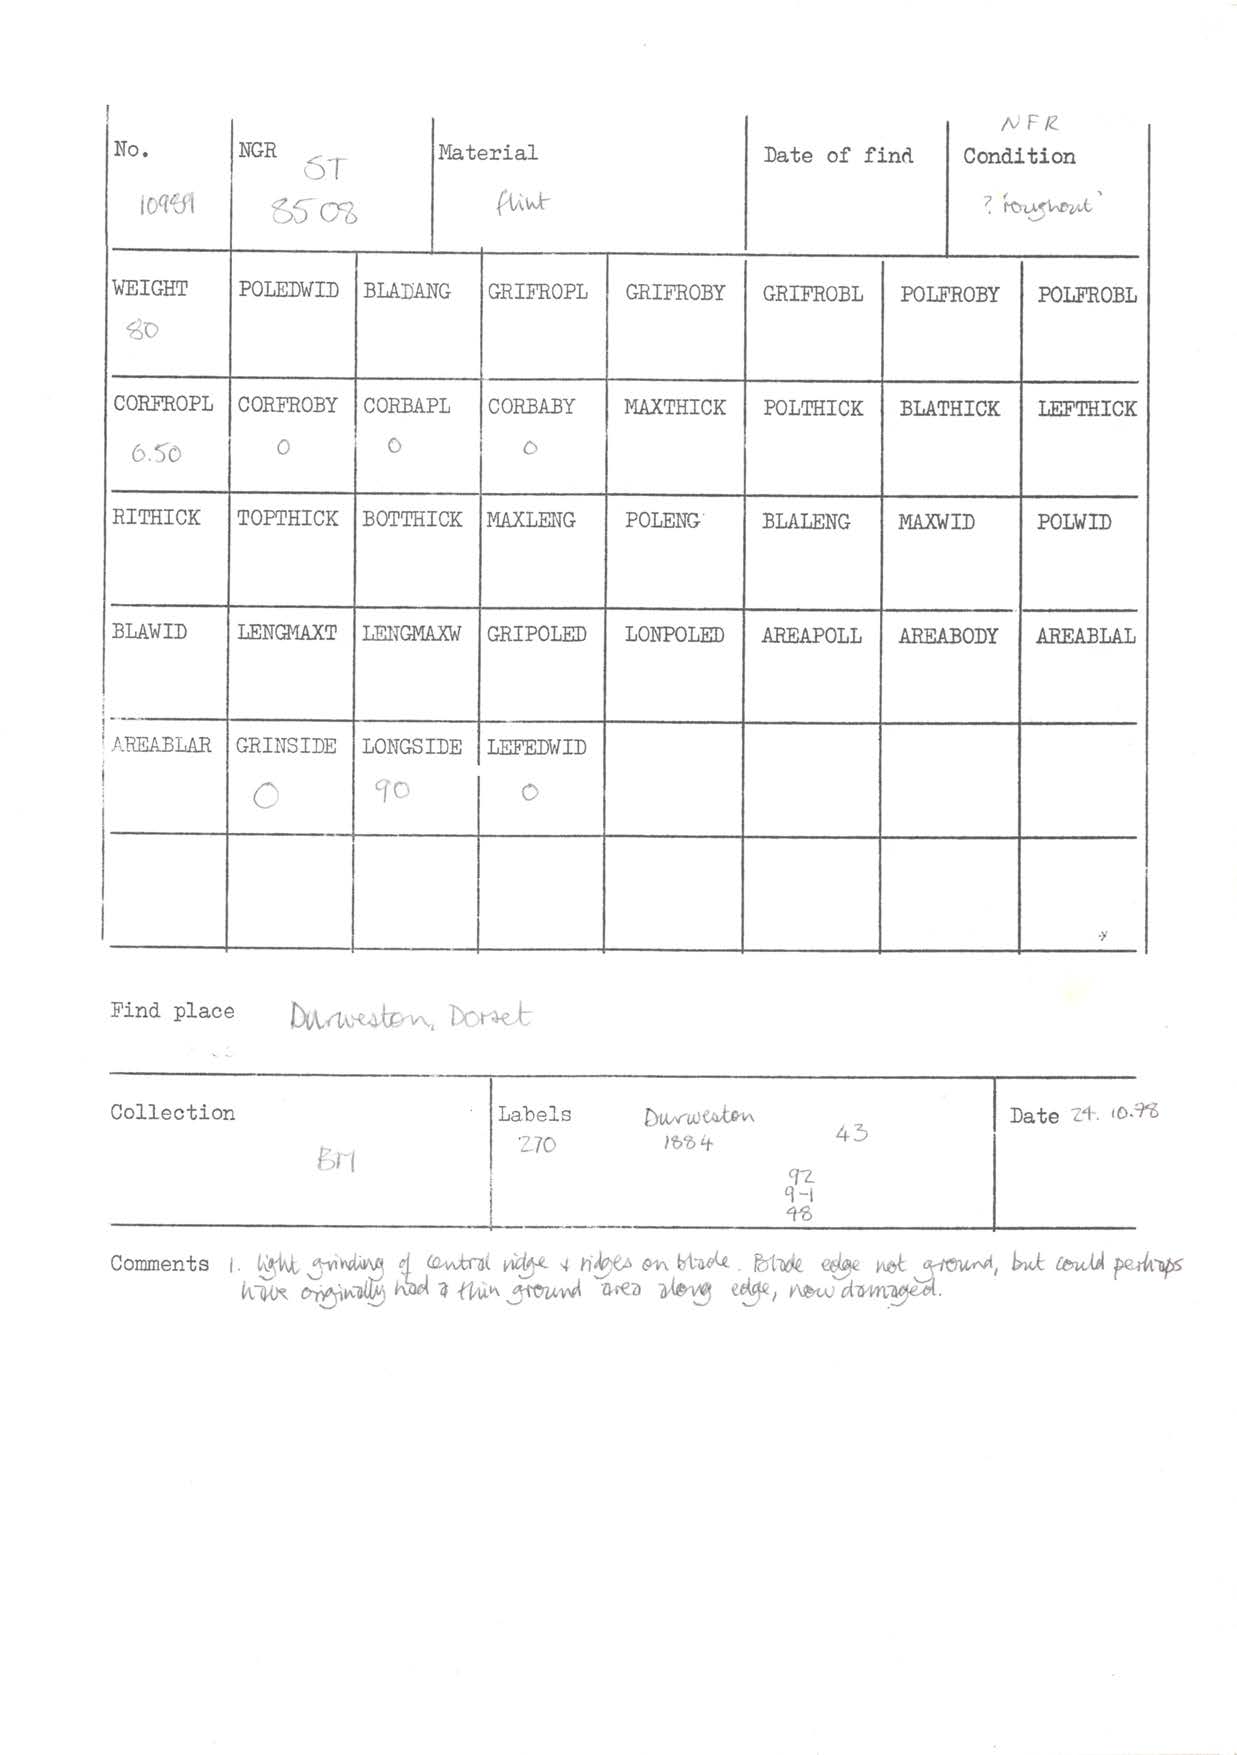 NFR
No. NGR Material Date of find Condition
ST
8508 flint ? 'roughout'
WEIGHT POLEDWID BLADANG GRIFROPL GRIFROBY GRIFROBL POLFROBY POLFROBL
80
CORFROPL CORFROBY CORBAPL CORBABY MAXTHICK POLTHICK BLATHICK LEFTHICK
6.50 0 0 0
RITHICK TOPTHICK BOTTHICK MAXLENG POLENG BLALENG MAXWID POLWID
BLAWID LENGMAXT LENGMAXW GRIPOLED LONPOLED AREAPOLL AREABODY AREABLAL
AREABLAR GRINSIDE LONGSIDE LEFEDWID
0 90 0
Find place Durweston, Dorset
Collection Labels Durweston Date 24.10.78
BM 270 1884 43
92
9-1
48
Comments 1. light grinding of central ridge + ridges on blade. Blade edge not ground, but could perhaps
have originally had a thin ground area along edge, now damaged.